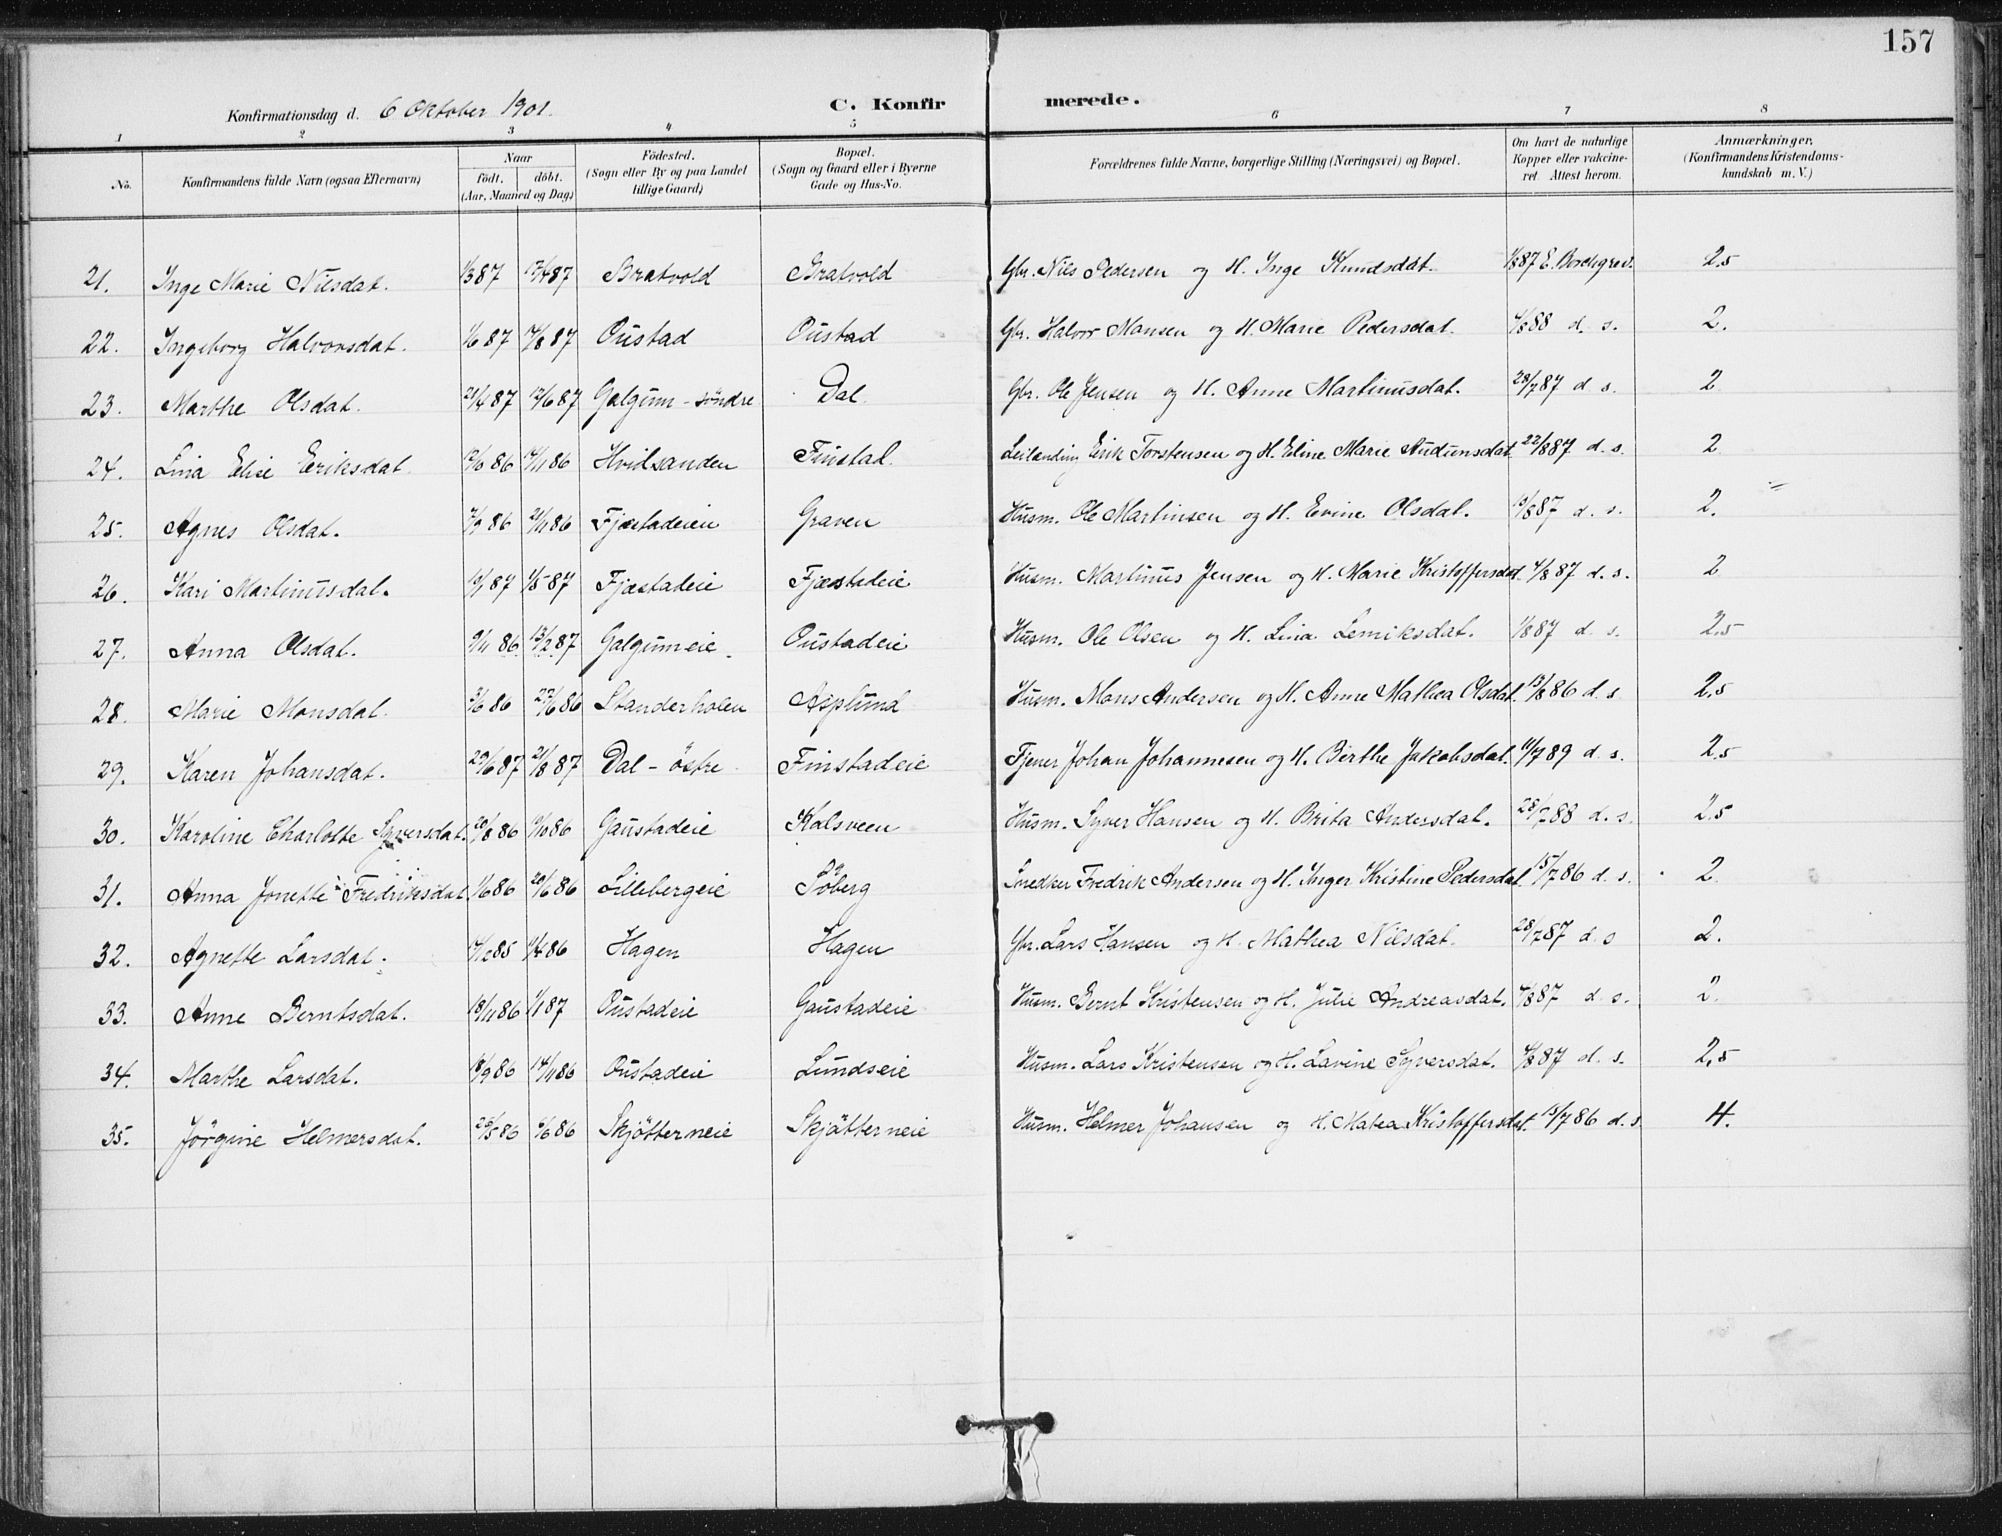 157
Konfirmationsdag d. 6 Oktober 1901. C. Konfirmerede.
1 2 3 4 5 6 7 8
No. Konfirmandens fulde Navn (ogsaa Efternavn) Naar födt. döbt. (Aar, Maaned og Dag) Födested. (Sogn eller By og paa Landet tillige Gaard) Bopæl. (Sogn og Gaard eller i Byerne Gade og Hus-No. Forældrenes fulde Navne, borgerlige Stilling (Næringsvei) og Bopæl. Om havt de naturlige Kopper eller vakcineret. Attest herom. Anmærkninger, (Konfirmandens Kristendomskundskab m. V.)
21. Inge Marie Nilsdat. 1/3 87 17/4 87 Bratvold Bratvold Gbr. Nils Pedersen og H. Inge Knudsdat. 1/8 87 E. Borchgrev.  2.5
22. Ingeborg Halvorsdat. 1/6 87 7/8 87 Oustad Oustad Gbr. Halvor Mansen og H. Marie Pedersdat. 4/8 88 d. s. 2.
23. Marthe Olsdat. 21/4 87 12/6 87 Galgum - söndre Dal Gbr. Ole Jensen og H. Anne Martinusdat. 28/7 87 d s. 2
24. Lina Elise Eriksdat. 12/10 86 14/11 86 Hvidsanden Finstad. Leilænding Erik Torstensen og H. Eline Marie Audunsdat 22/8 87 d. s. 2
25. Agnes Olsdat. 7/9 86 21/11 86 Fjæstadeien Graven Husm. Ole Martinsen og H. Evine Olsdat. 19/8 87 d. s. 2.
26. Kari Martinusdat. 10/1 87 1/5 87 Fjæstadeie Fjæstadeie Husm. Martinus Jensen og H. Marie Kristoffersdat. 4/8 87 d. s. 2
27. Anna Olsdat. 9/11 86 13/2 87 Galgumeie Oustadeie Husm. Ole Olsen og H. Lina Lemiksdat. 1/8 87 d. s. 2.5
28. Marie Monsdat. 3/6 86 27/6 86 Standerholen Asplund Husm. Mons Andersen og H. Anne Mathea Olsdat. 13/8 86 d. s. 2.5
29. Karen Johansdat. 29/6 87 21/8 87 Dal - östre Finstadeie Tjener Johan Johannesen og H. Berthe Jakobsdat. 11/7 89 d. s. 2.5
30. Karoline Charlotte Syversdat. 26/8 86 10/10 86 Gaustadeie Kalsveen Husm. Syver Hansen og H. Brita Andersdat. 28/7 88 d. s. 2.5
31. Anna Jonette Fredriksdat. 1/6 86 20/6 86 Lillebergeie Söberg Snedker Fredrik Andersen og H. Inger Kristine Pedersdat. 15/7 86 d. s. 2.
32. Agnette Larsdat. 17/12 85 11/4 86 Hagen Hagen Gbr. Lars Hansen og H. Mathea Nilsdat. 28/7 87 d s 2.
33. Anne Berntsdat. 18/11 86 1/1 87 Oustadeie Gaustadeie Husm. Bernt Kristensen og H. Julie Andreasdat. 4/8 87 d. s. 2.
34. Marthe Larsdat. 18/9 86 14/11 86 Oustadeie Lundseie Husm. Lars Kristensen og H. Lavine Syversdat. 4/8 87 d. s. 2,5
35. Jörgine Helmersdat. 25/5 86 6/6 86 Skjötterneie Skjötterneie Husm. Helmer Johansen og H. Matea Kristoffersdat. 15/7 86 d. s. 4.